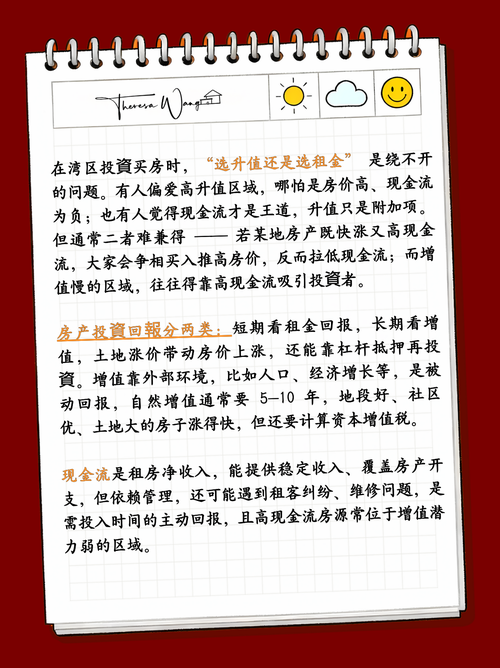 Theresa Wang
在湾区投資买房时，“选升值还是选租金” 是绕不开
的问题。有人偏爱高升值区域，哪怕是房价高、现金流
为负；也有人觉得现金流才是王道，升值只是附加项。
但通常二者难兼得 —— 若某地房产既快涨又高现金
流，大家会争相买入推高房价，反而拉低现金流；而增
值慢的区域，往往得靠高现金流吸引投資者。
房产投資回報分两类：短期看租金回报，长期看增
值，土地涨价带动房价上涨，还能靠杠杆抵押再投
資。增值靠外部环境，比如人口、经济增长等，是被
动回报，自然增值通常要 5–10 年，地段好、社区
优、土地大的房子涨得快，但还要计算资本增值税。
现金流是租房净收入，能提供稳定收入、覆盖房产开
支，但依赖管理，还可能遇到租客纠纷、维修问题，是
需投入时间的主动回报，且高现金流房源常位于增值潜
力弱的区域。